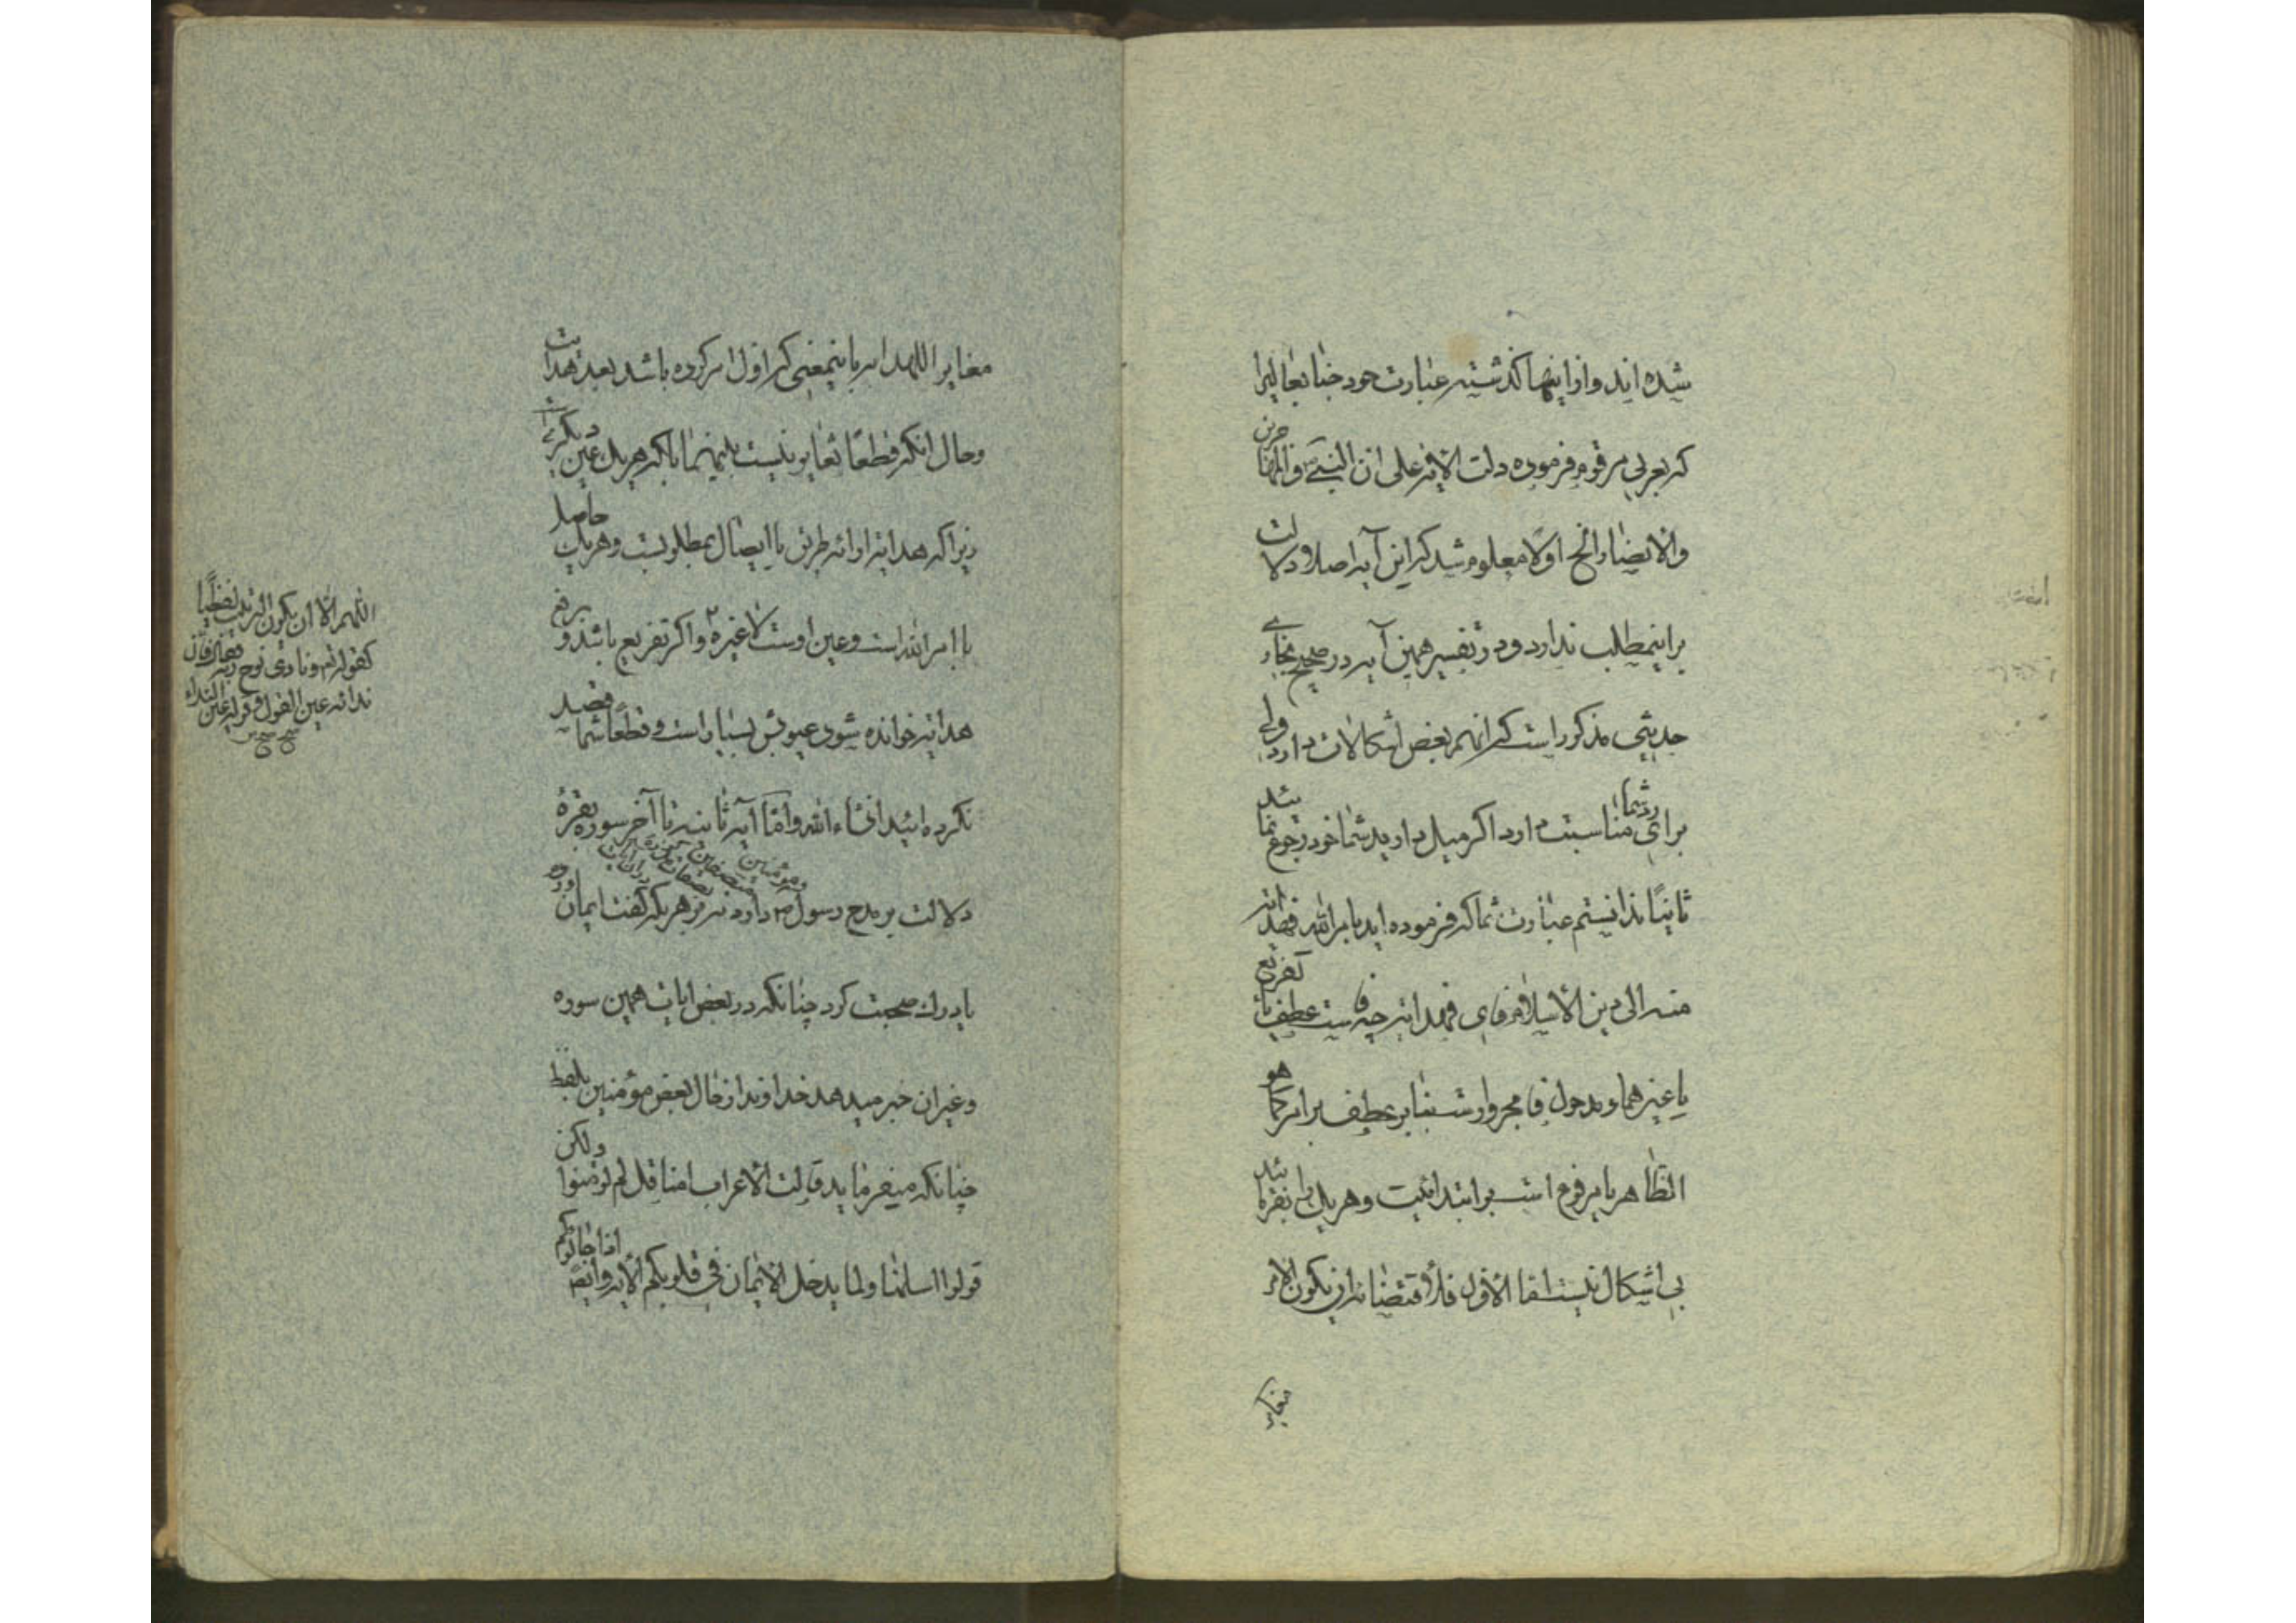 شده اند و از اینها گذشته عبارت خود جنابعالیرا
که بعربی مرقوم فرموده دلت الایة علی ان النبی ص و المهاجرین
والانصار الخ اولا معلوم شد که این آیه اصلا دلالت
بر اینمطلب ندارد و در تفسیر همین آیه در صحیح بخاری
حدیثی مذکور است که آنهم بعض اشکالات دارد ولی
برای رد شما مناسبت دارد اگر میل دارید شما خود رجوع نمائید
ثانیا ندانستم عبارت شما که فرموده اید بامر الله فهدایة
منه الی دین الاسلام فای فهدایة چه فاست عطف یا تفریع
یا غیرهما و مدخول فا مجرور است بنابر عطف بر امر کما هو
الظاهر یا مرفوع است بر ابتدائیت و هر یک را بفرمائید
بی اشکال نیست اما الاول فلاقتضائه ان یکون الامر
مغایر
مغایرا للهدایة باینمعنی که اول امر کرده باشد بعد هدایت
و حال انکه قطعا تغایر نیست بینهما بلکه هر یک عین دیگریست
زیرا که هدایة ارائه طریق یا ایصال بمطلوبست و هر یک حاصل
با امر الله است و عین اوست لا غیره و اگر تفریع باشد و برفع
هدایة خوانده شود عیوبش بسیار است و قطعا شما قصد
نکرده ائید انشاء الله و اما آیه ثانیه تا آخر سوره بقره
دلالت بر مدح رسول ص دارد و مؤمنین نه بر هر یکه گفت ایمان اوردم
یا درک صحبت کرد چنانکه در بعض ایات همین سوره
و غیر ان خبر میدهد خداوند از حال بعض مؤمنین بلفظ
چنانکه میفرماید قالت الاعراب امنا قل لم تؤمنوا ولکن
قولوا اسلمنا ولما یدخل الایمان فی قلوبکم الایة و ایضا اذا جائوکم
اللهم الا ان یکون الترتیب لفظیا
کقوله تعالی و نادی نوح ربه فقال فان
ندائه عین القول و قوله عین النداء